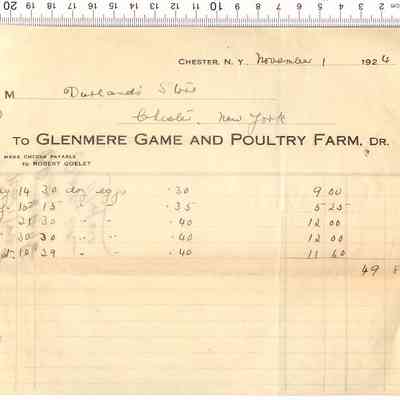 20 19 18 17 16 15 14 13 12 11 10 9 8 7 6 5 4 3 2
CHESTER, N. Y. November 1 1924
M Durland's Store
Chester, New York
TO GLENMERE GAME AND POULTRY FARM, DR.
MAKE CHECKS PAYABLE
TO ROBERT GOELET
14 30 doz eggs .30 9 00
15 " " .35 5 25
30 " " .40 12 00
30 30 " " .40 12 00
29 " " .40 11 60
49 8